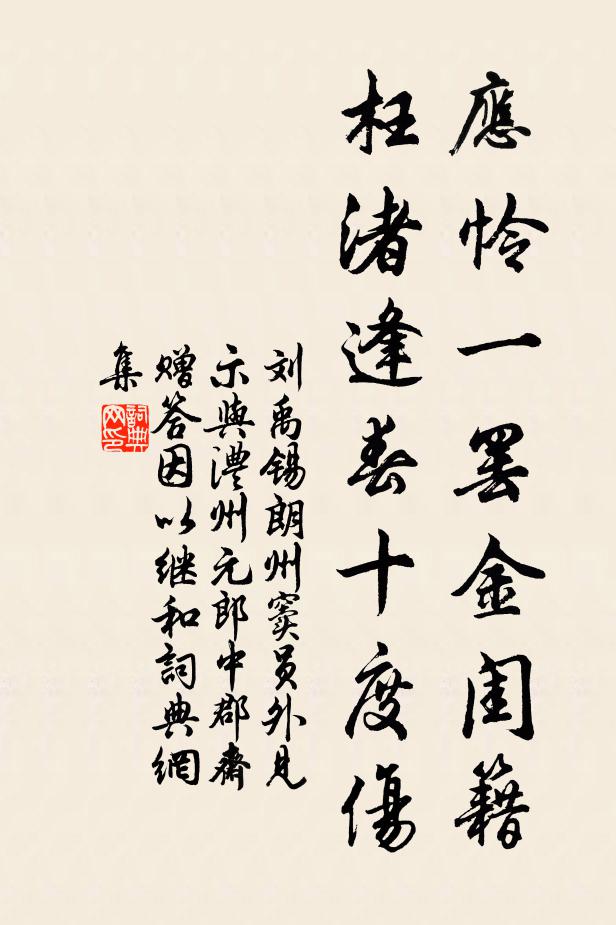 應怜一罢金闺籍
枉渚逢春十度傷
刘禹锡朗州窦员外见
示與澧州元郎中郡齋
赠答因以继和詞典網
集
詞典
网印